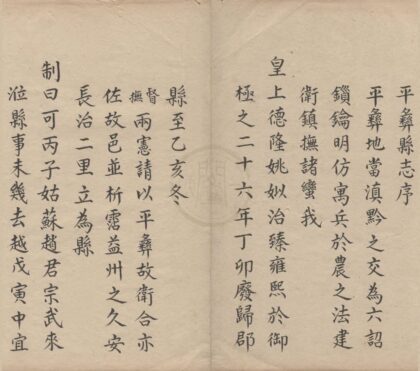 平彝縣志序
平彝地當滇黔之交為六詔
鎖鑰明仿寓兵於農之法建
衛鎮撫諸蠻我
皇上德隆姚姒治臻雍熙於御
極之二十六年丁卯廢歸郡
縣至乙亥冬
督撫兩憲請以平彝故衛合亦
佐故邑並析霑益州之久安
長治二里立為縣
制曰可丙子姑蘇趙君宗武來
涖縣事未幾去越戊寅中宜